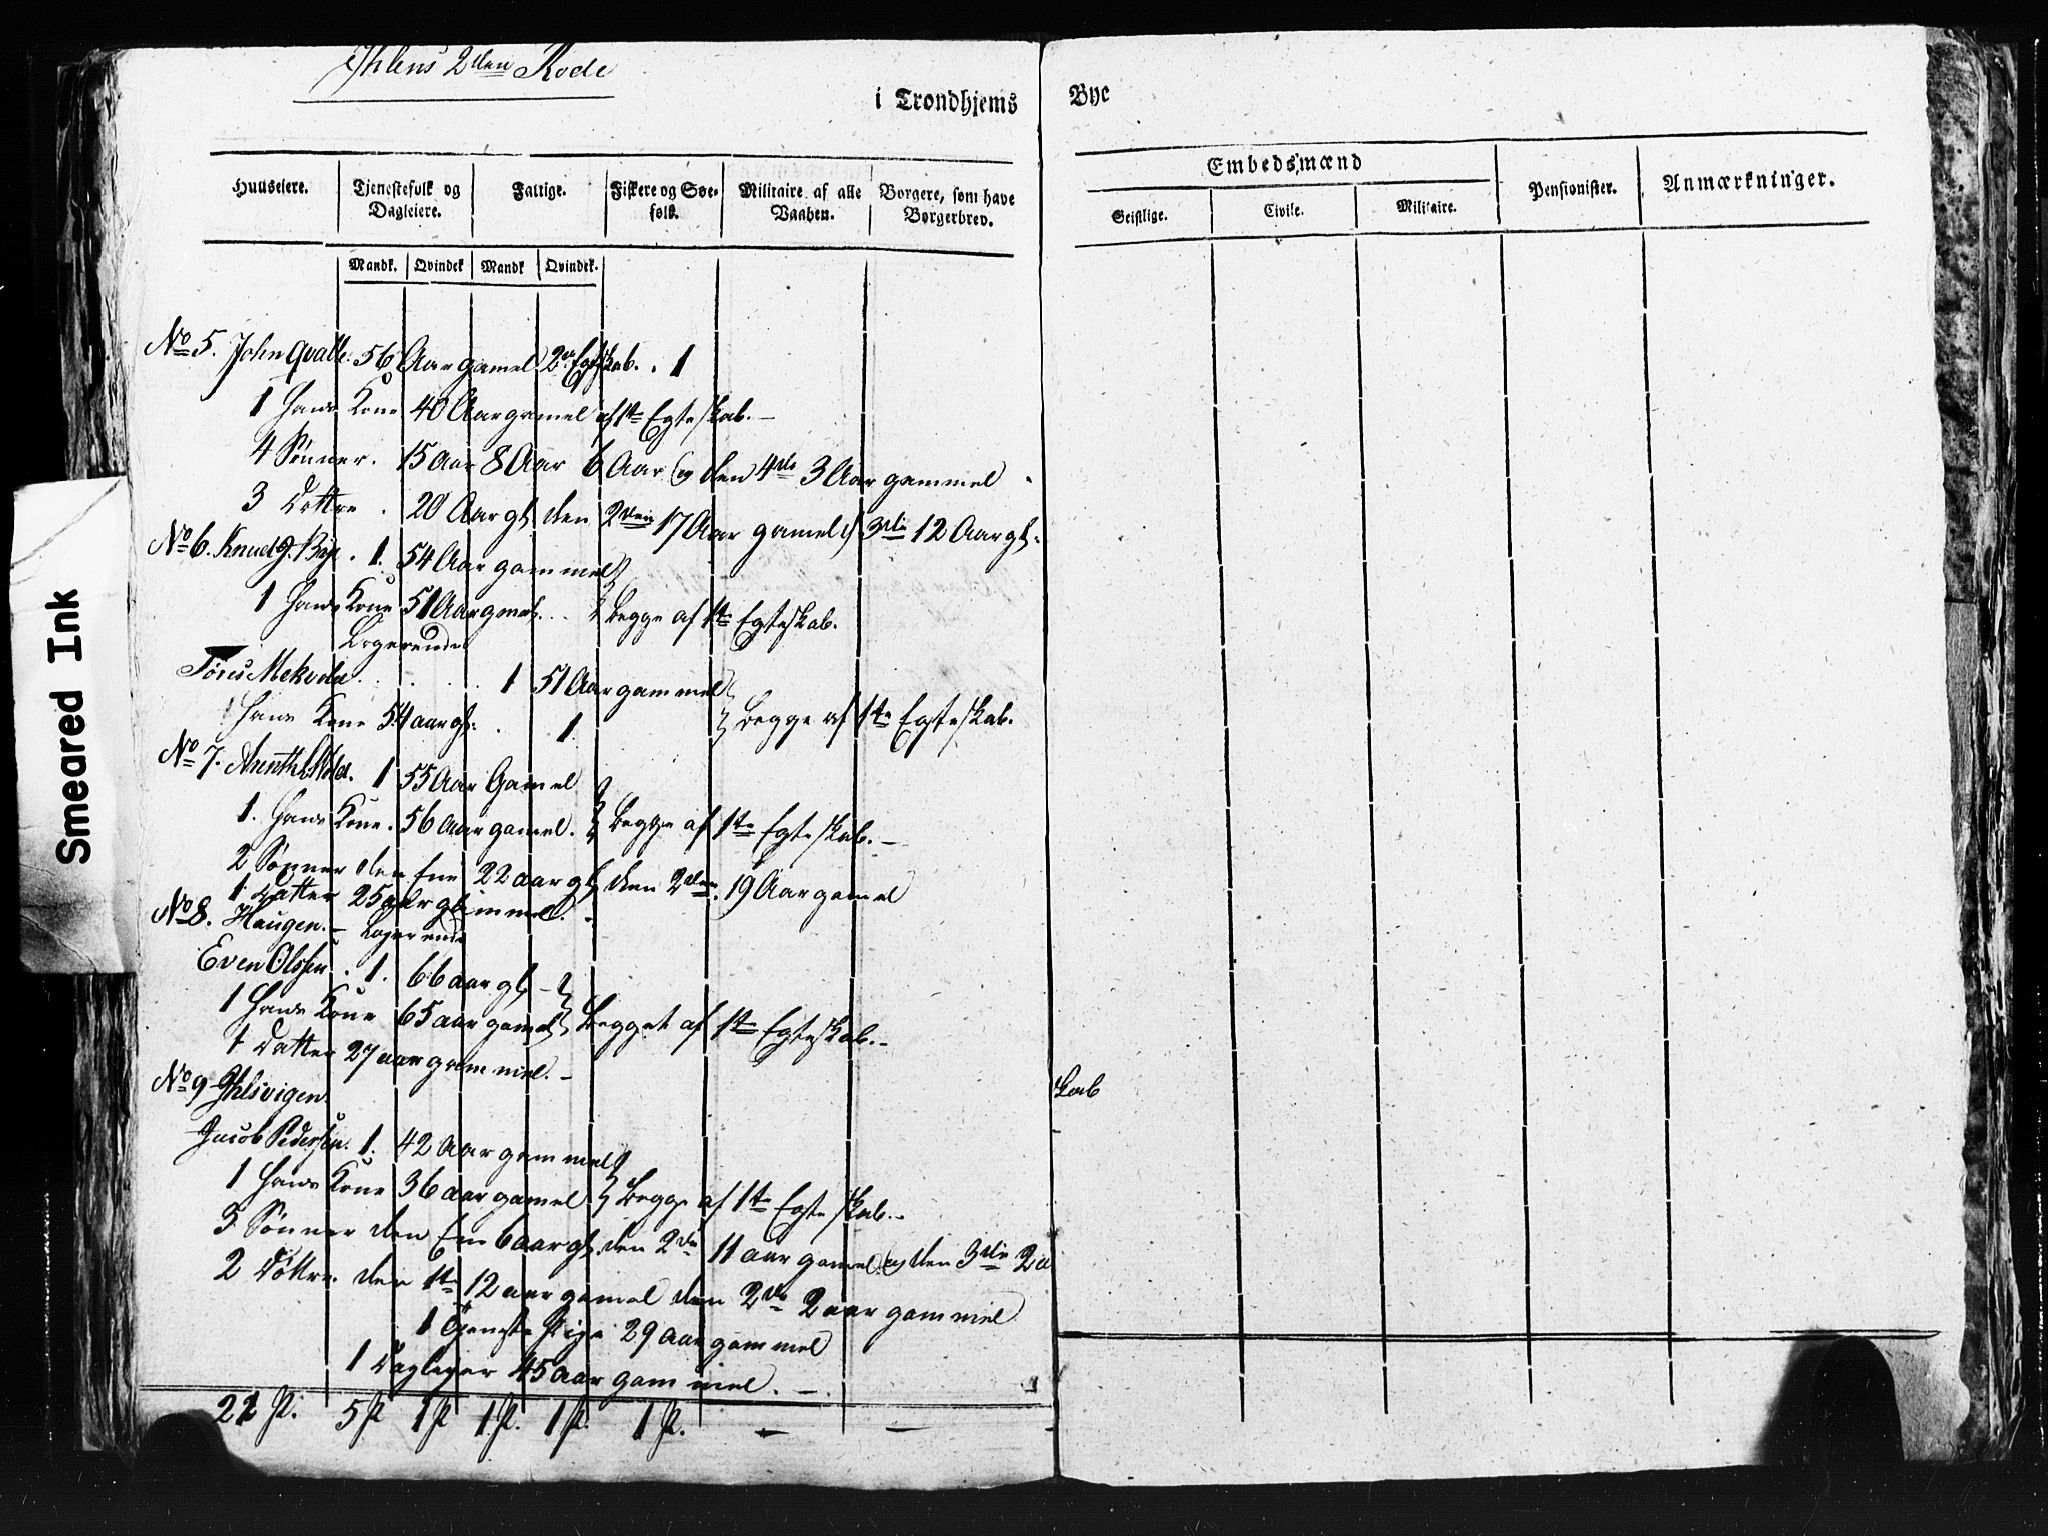 Ihlens 2den Rode
i Trondhjems Bye
Huuseiere. Tjenestefolk og Dagleiere. Fattige. Fiskere og Søe-folk. Militaire af alle Vaaben. Borgere, som have Borgerbrev. Embedsmænd Pensionister. Anmærkninger.
Geistlige. Civile. Militaire.
Mandk. Qvindek Mandk Qvindek.
No 5. John Qvalle. 56 Aar gamel 2det Egteskab. . 1
1 Hans Kone 40 Aar gamel af 1te Egteskab. —
4 Sønner. 15 Aar 8 Aar 6 Aar og den 4de 3 Aar gammel
3 Døttre . 20 Aar gl den 2den 17 Aar gamel d 3die 12 Aar gl.
No 6. Knud J. Bye . 1. 54 Aar gammel
1 Hans Kone 51 Aar gamel. . . Begge af 1te Egteskab.
Logerende
1 51 Aar gammel
1 Hans Kone 54 aar gl. . 1 Begge af 1te Egteskab.
No 7. 1 55 Aar Gamel
1. Hans Kone. 56 Aar gamel. Begge af 1te Egteskab. —
2 Sønner den Ene 22 aar gl den 2den. 19 Aar gamel
1. Datter 25 aar gammel.
No 8. Haugen. — Logerende
Even Olssen . 1. 66 aar gl —
1 Hans Kone 65 aar gamel Begget af 1te Egteskab. —
1 Datter 27 aar gammel. —
No 9 Ihlsvigen.
Jacob Pedersen. 1. 42 Aar gammel
1 Hans Kone 36 aar gamel Begge af 1te Egteskab. —
3 Sønner den Ene 6 aar gl. den 2den 11 aar gamel og den 3die 2 a
2 Døttre den 1te 12 aar gamel den 2den 2 aar gammel
1 Tieneste Pige 29 Aar gammel
1 Dagleyer 45 aar gammel. —
5 P 1 P 1 P. 1 P. 1 P. — —
skab
Smeared Ink